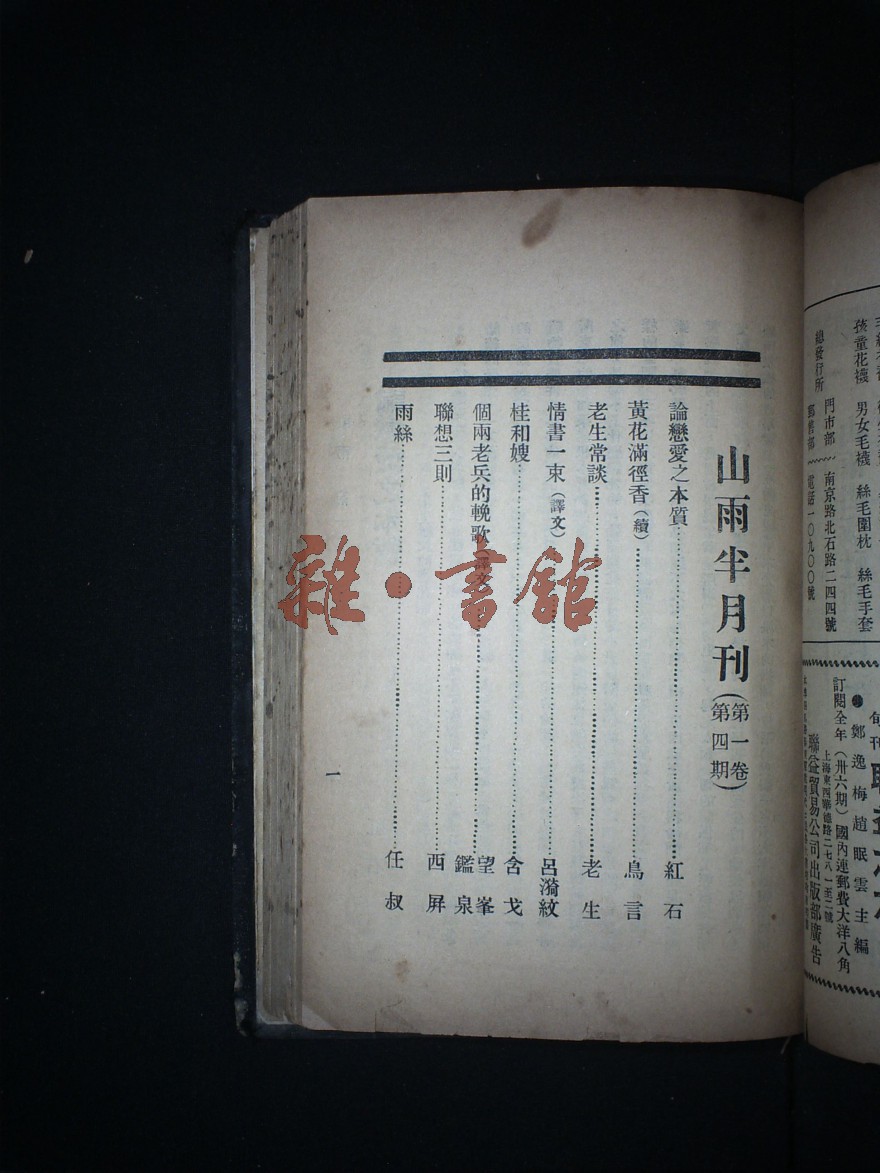 山雨半月刊（第一卷第四期）
論戀愛之本質 紅石
黃花滿徑香（續） 鳥言
老生常談 老生
情書一束（譯文） 呂漪紋
桂和嫂 含戈
個兩老兵的輓歌（譯文） 望峯 鑑泉
聯想三則 西屏
雨絲 任叔
一
孩童花襪 男女毛襪 絲毛圍枕 絲毛手套
總發行所
門市部 南京路北石路二四四號
電話一〇九〇〇號
旬刊
●鄭逸梅趙眠雲主編
訂閱全年（卅六期）國內連郵費大洋八角
上海東西華德路二七八一至二號
聯益貿易公司出版部廣告
雜·書館